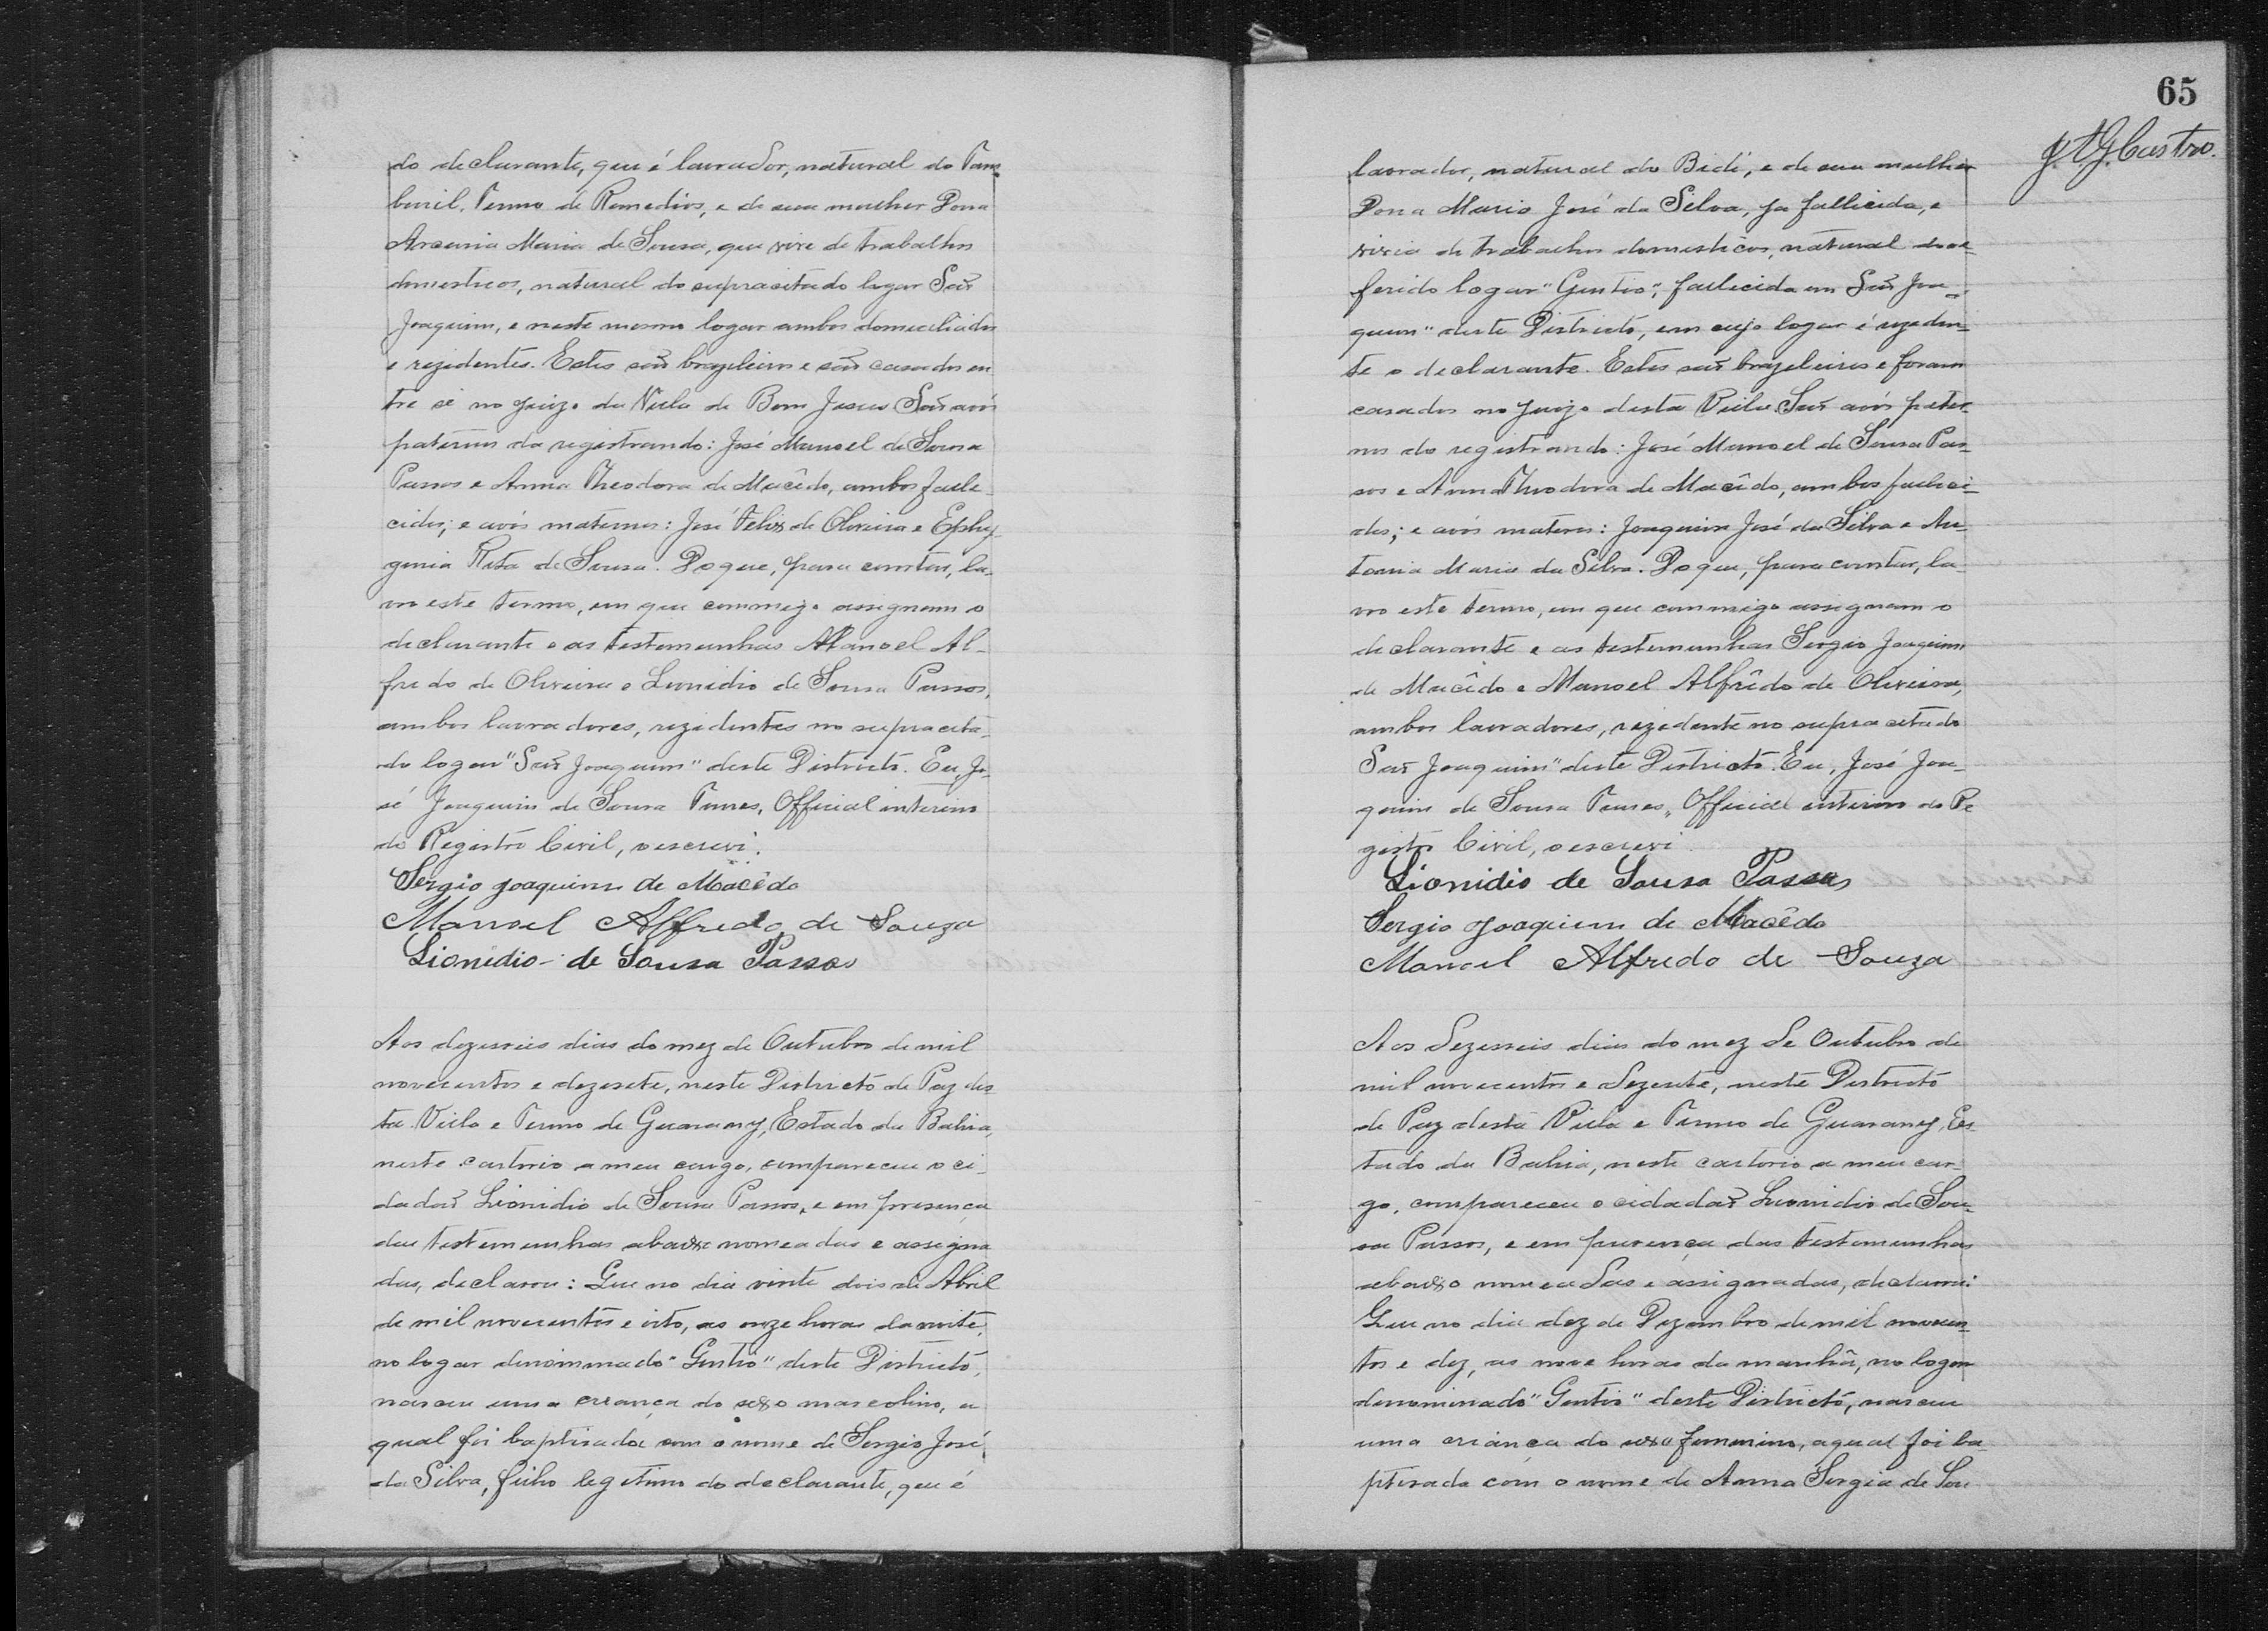 do declarante, que é lavrador, natural do Tam-
buril, Termo de Remedios, e de sua mulher Dona
Arcenia Maria de Sousa, que vive de trabalhos
domesticos, natural do supracitado logar São
Joaquim, e neste mesmo logar ambos domiciliados
e rezidentes. Estes são brazileiros e são casados en
tre si no juizo da Villa de Bom Jesus. São avós
paternos da registrando: José Manoel de Sousa
Passos e Anna Theodora de Macêdo, ambos falle-
cidos; e avós maternos: José Felix de Oliveira e Ephy-
genia Rita de Sousa. Do que, para constar, la-
vro este termo, em que commigo assignam o
declarante e as testemunhas Manoel Al-
fredo de Oliveira e Leonidio de Sousa Passos,
ambos lavradores, rezidentes no supracita-
do logar "São Joaquim" deste Districto. Eu, Jo-
sé Joaquim de Sousa Tunes, Official interino
do Registro Civil, o escrevi.
Sergio Joaquim de Macêdo
Manoel Alfredo de Souza
Lionidio de Sousa Passos
Aos dezesseis dias do mez de Outubro de mil
novecentos e dezesete, neste Districto de Paz des-
ta Villa e Termo de Guarany, Estado da Bahia,
neste cartorio a meu cargo, compareceu o ci-
dadão Lionidio de Sousa Passos, e em presença
das testemunhas abaixo nomeadas e assigna
das, declarou: Que no dia vinte dois de Abril
de mil novecentos e oito, as onze horas da noite,
no logar denominado "Gentio" deste Districto,
nasceu uma creança do sexo mascolino, a
qual foi baptisada com o nome de Sergio José
da Silva, filho legitimo do declarante, que é
65
J. A. G. Castro.
lavrador, natural do Bidé, e de sua mulher
Dona Maria José da Silva, ja fallicida, e
vivia de trabalhos domesticos, natural do re-
ferido logar "Gentio", fallecida em São Joa-
quim" deste Districto, em cujo logar é reziden-
te o declarante. Estes são brazileiros e foram
casados no juizo desta Villa. São avós pater-
nos do registrando: José Manoel de Sousa Pas-
sos e Anna Theodora de Macêdo, ambos falleci-
dos; e avós materos: Joaquim José da Silva e An-
tonia Maria da Silva. Do que, para constar, la-
vro este termo, em que commigo assignam o
declarante e as testemunhas Sergio Joaquim
de Macêdo e Manoel Alfrêdo de Oliveira,
ambos lavradores, rezidente no supracitado
São Joaquim" deste Districto. Eu, José Joa-
quim de Sousa Tunes, Official interino do Re
gistro Civil, o escrevi.
Lionidio de Sousa Passos
Sergio Joaquim de Macêdo
Manoel Alfredo de Souza
Aos dezesseis dias do mez de Outubro de
mil novecentos e dezesete, neste Districto
de Paz desta Villa e Termo de Guarany, Es-
tado da Bahia, neste cartorio a meu car-
go, compareceu o cidadão Leonidio de Sou-
sa Passos, e em presença das testemunhas
abaixo nomeadas e assignadas, declarou:
Que no dia dez de Dezembro de mil novecen-
tos e dez, as nove horas da manhã, no logar
denominado "Gentio" deste Districto, nasceu
uma criança do sexo femenino, a qual foi ba
ptisada com o nome de Anna Sergia de Sou